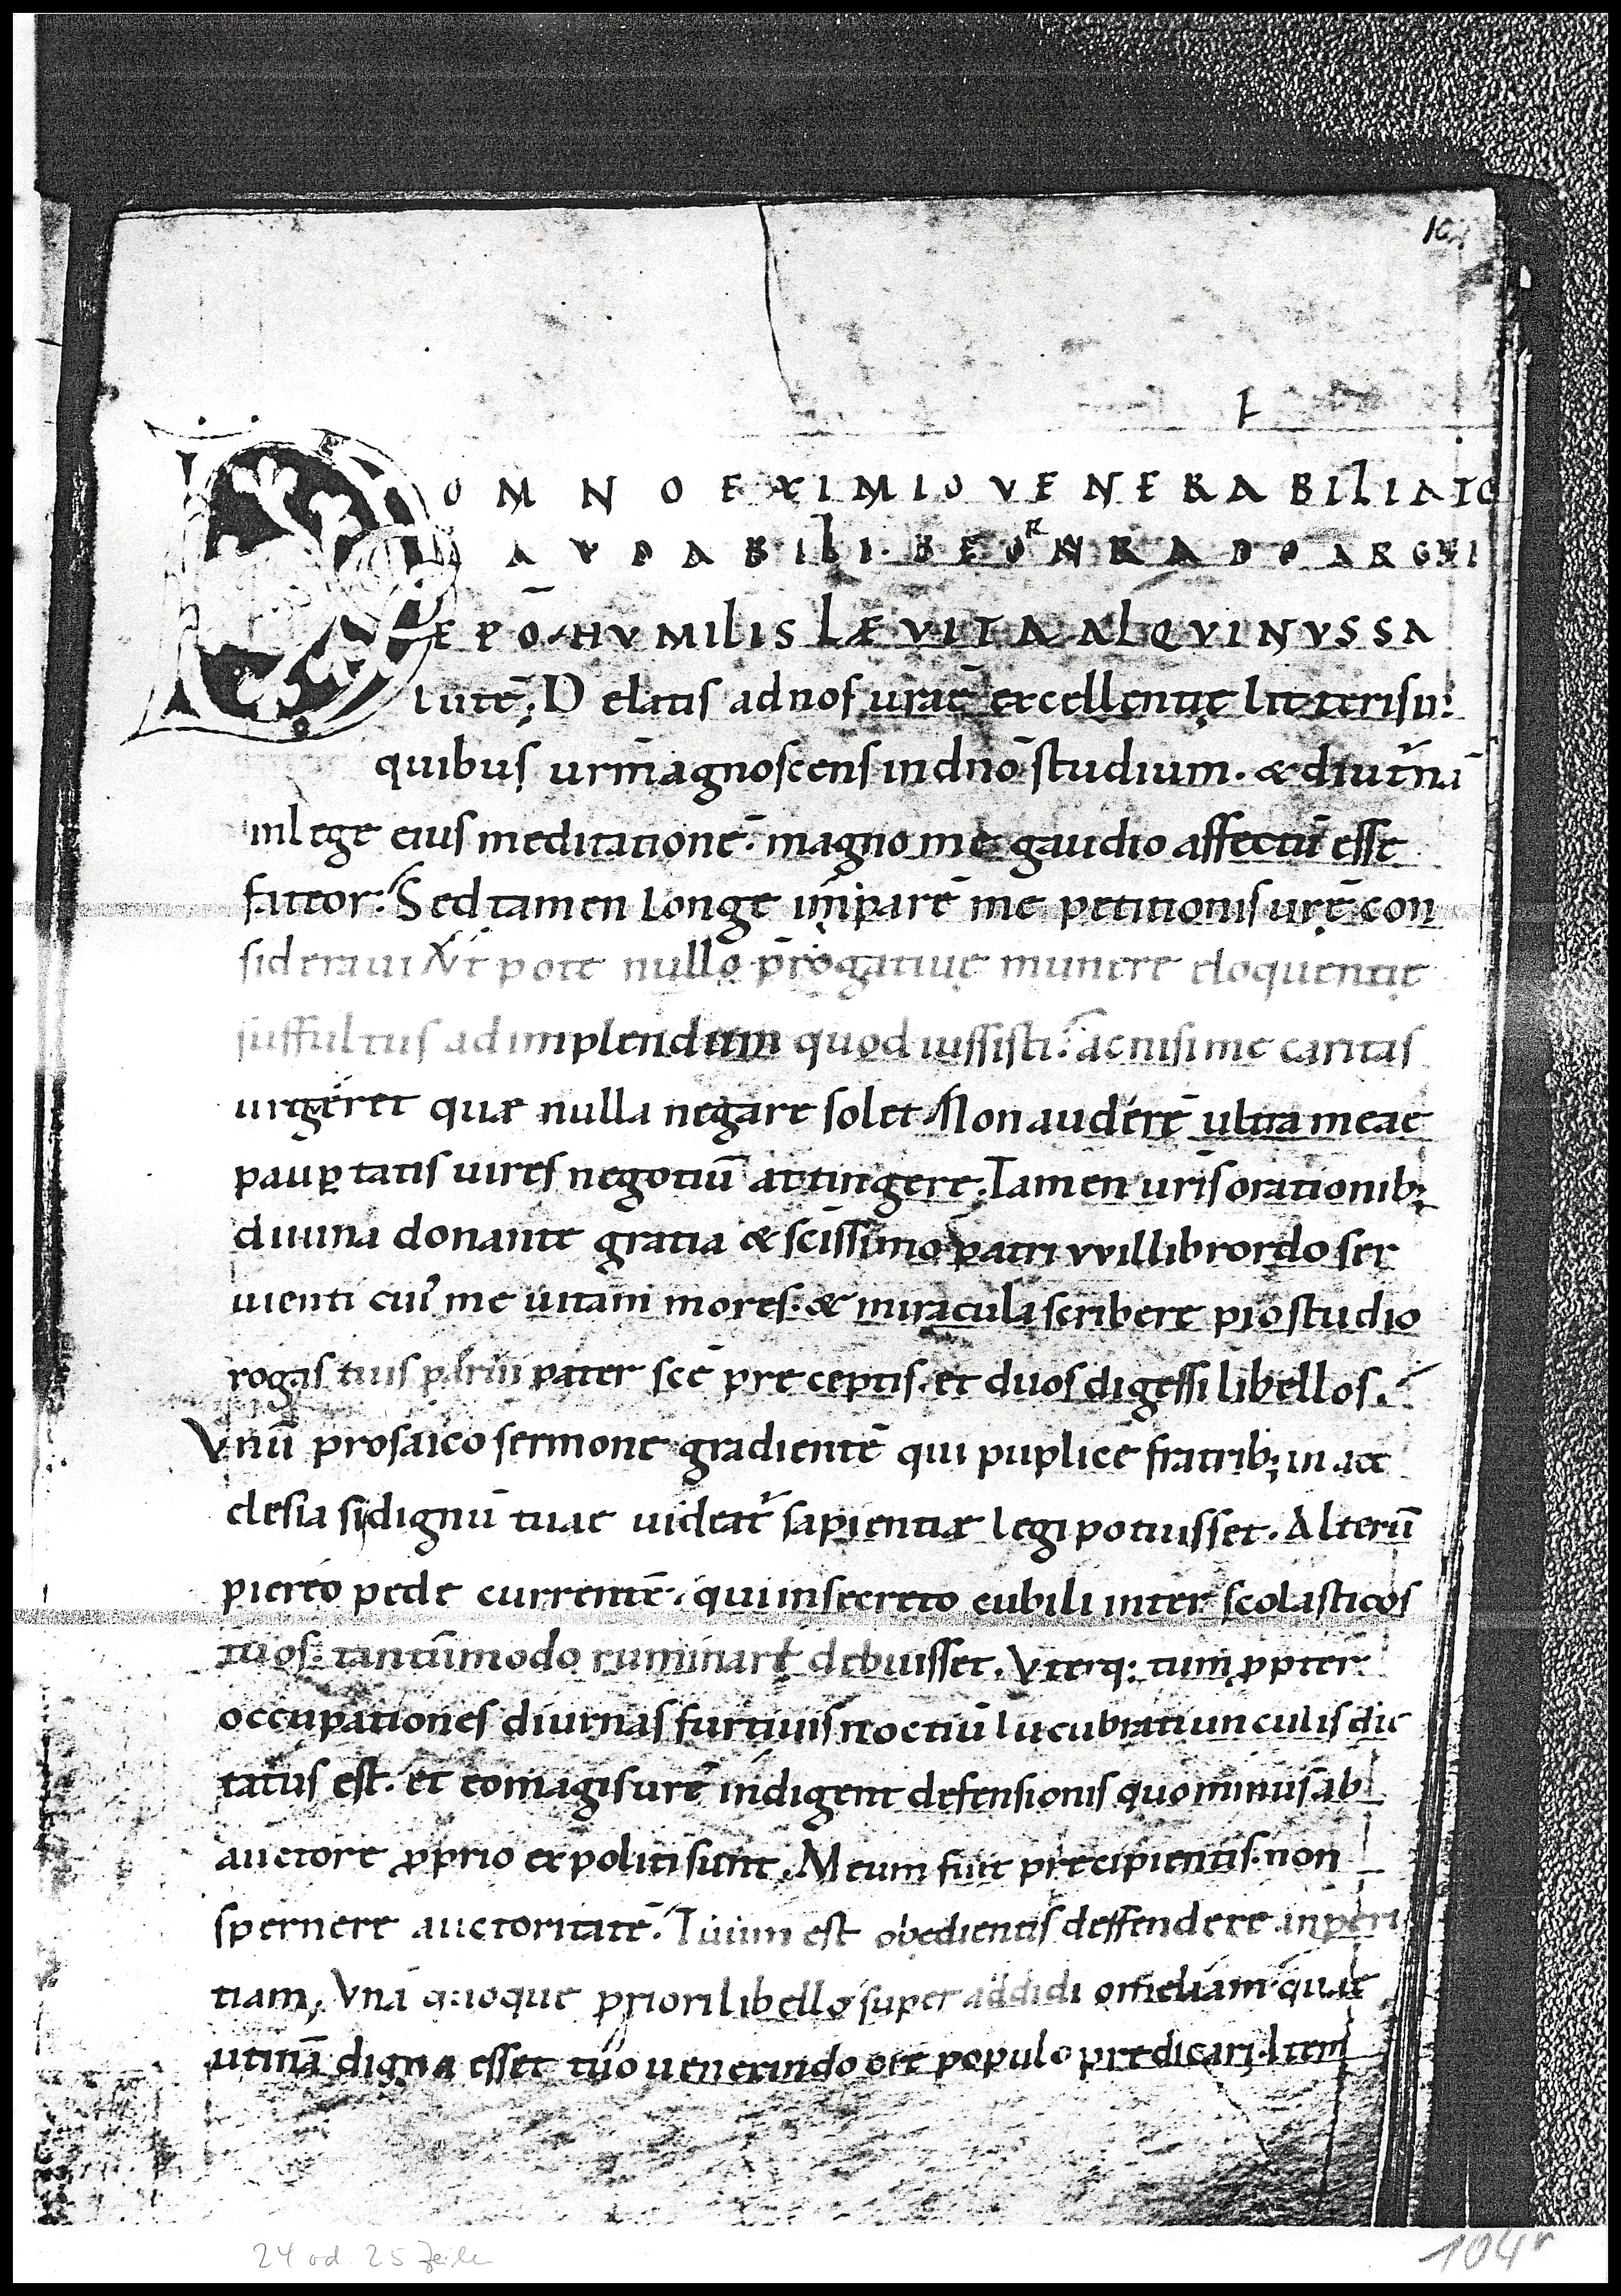 104
DOMNO EXIMIO VENERABILI ATQ
LAVDABILI· BEORNRADO ARCHI
EPŌ· HVMILIS LÆVITA ALQVINVS SA
lutē; Delatis ad nos urāe excellentię litterisin:
quibus urm̄ agnoscens in dnō studium· & diut̄nā
in lege eius meditationē· magno me gaudio affectū esse
fateor· Sed tamen longe imparē me petitionis urę̄ con
sideraui Vt pote nullo p̄rogatiuę munere eloquentię
suffultus ad implendum quod iussisti· ac nisi me caritas
urgeret quæ nulla negare solet Non auderē ultra meae
paup̱tatis uires negotiū attingere. Tamen urīs orationib;
diuina donante gratia & scīssimo patri vvillibrordo ser
uienti cui' me uitam mores· & miracula scribere pio studio
rogas tuis pater scē preceptis· et duos digessi libellos.
Vnū prosaico sermone gradientē qui puplice fratrib; in æc
clesia si dignū tuae uideat̄ sapientiæ legi potuisset. Alterū
piereo pede currentē· qui in secreto cubili inter scolasticos
tuos: tantūmodo ruminare debuisset. Vterq: tum ꝓpter
occupationes diurnas furtiuis noctiū lucubratiunculis dic
tatus est. et eo magis urē indigent defensionis quo minus ab
auctore ꝓprio expoliti sunt. Meum fuit precipientis· non
spernere auctoritatē· Tuum est obedientis deffendere inperi
tiam; Vnā quoque priori libello super addidi omeliam· quae
utinā digna esset tuo uenerando ore populo predicari. Item
24 od. 25 Zeilen
104r